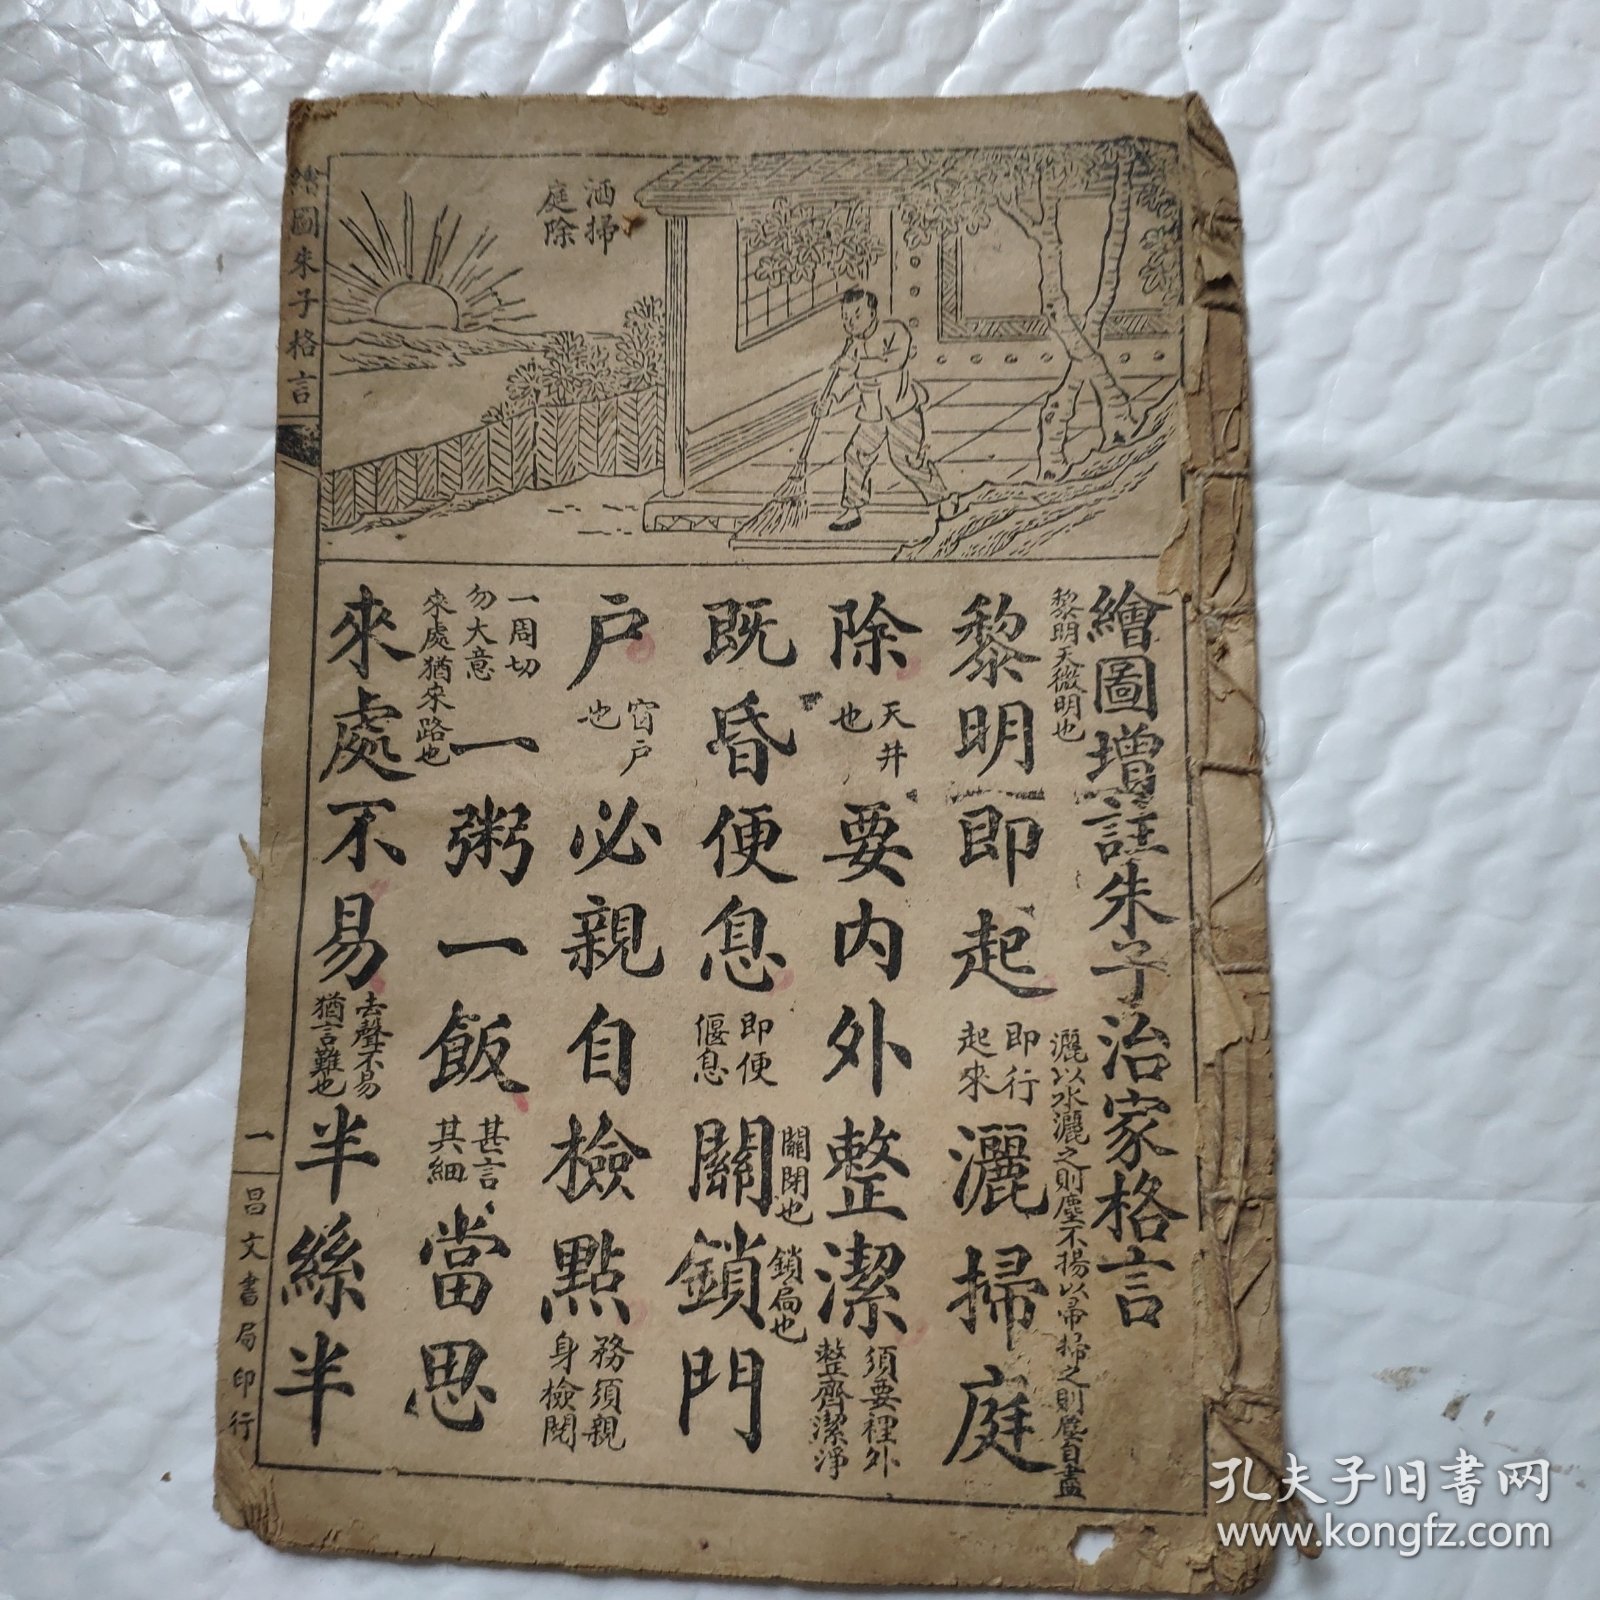 洒掃
庭除
繪圖增註朱子治家格言
黎明天微明也
灑以水灑之則塵不揚以帚掃之則塵自盡
黎明即起
即行
起來
灑掃庭
除
天井
也
要內外整潔
須要裡外
整齊潔淨
關閉也
鎖扃也
既昏便息
即便
偃息
關鎖門
戶
窗戶
也
必親自檢點
務須親
身檢閱
一周切
勿大意
一粥一飯
甚言
其細
當思
來處猶來路也
來處不易
去聲不易
猶言難也
半絲半
繪圖朱子格言
一
昌文書局印行
孔夫子旧书网
www.kongfz.com